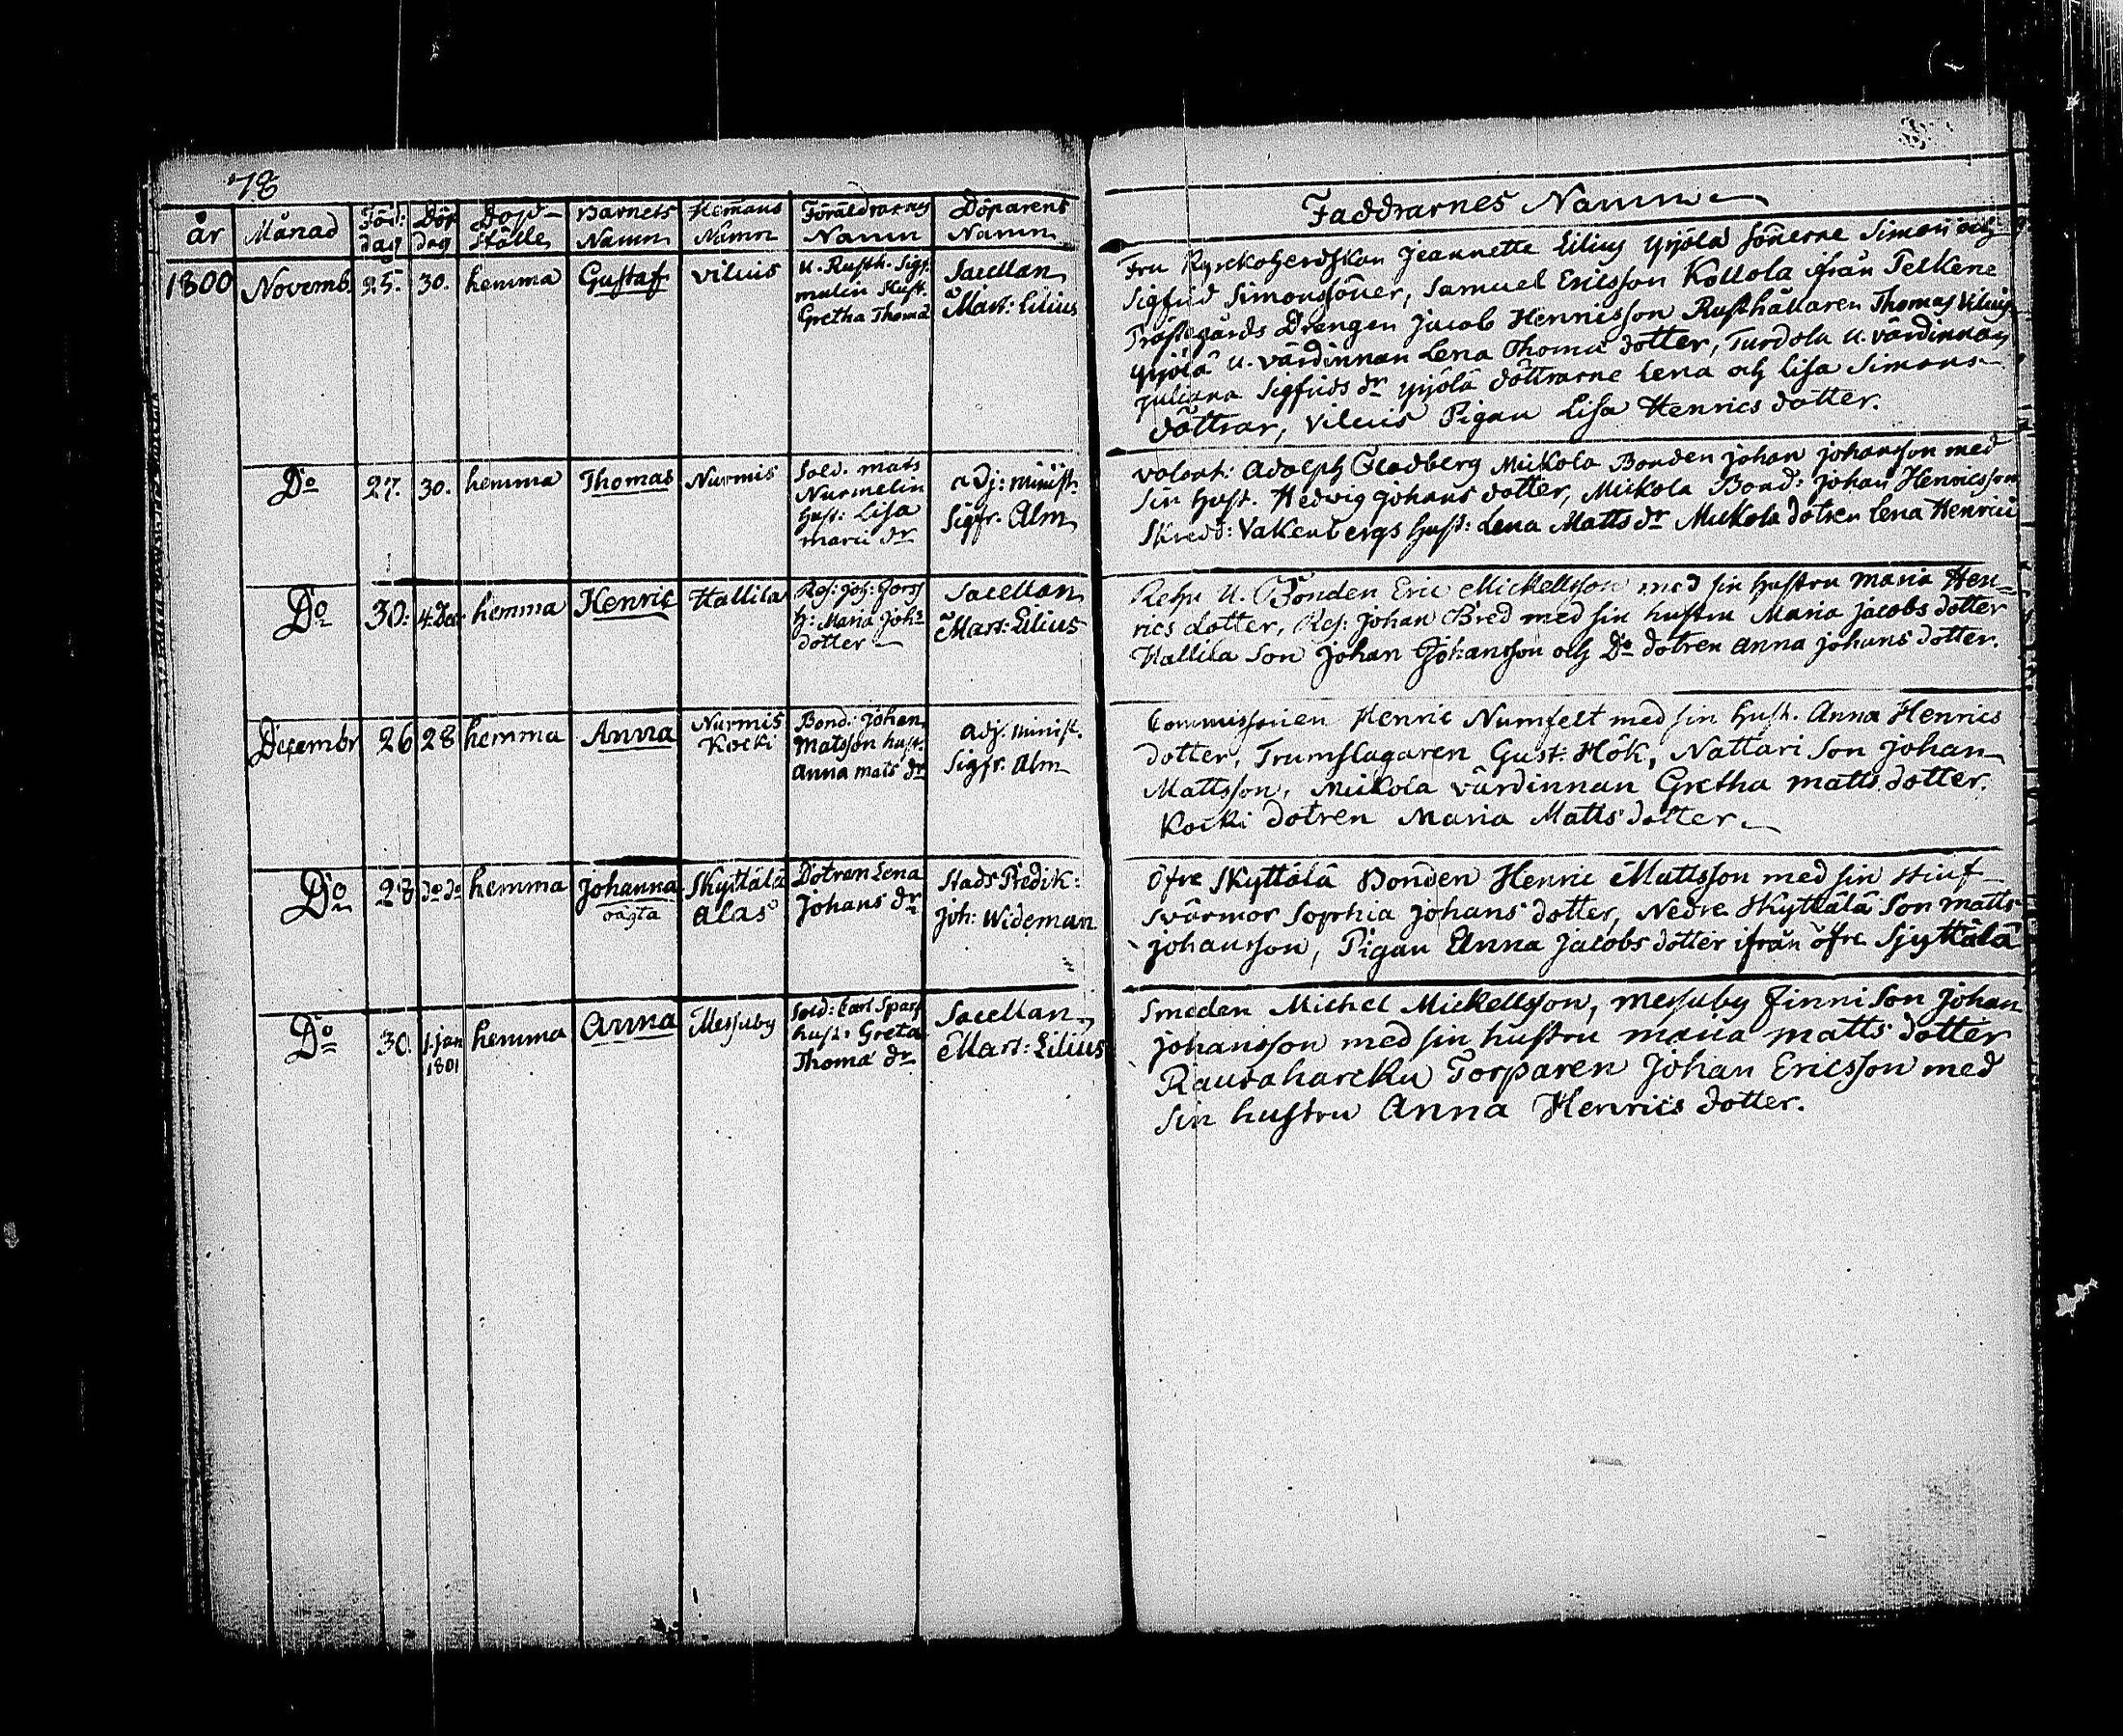 78
år Månad Föd: dag Döp dag Döp- ställe Barnets Namn Hemans Namn Föräldrarnes Namn Döparens Namn
Faddrarnes Namn
1800 Novemb. 25. 30. hemma Gustaf Viluis
U. Rusth. Sigf.
mulin Hust.
Gretha Thomæ
Sacellan
Mart: Lilius
Fru Kyrckoherdskan Jeannette Lilius Yrjölä Sönerne Simon och
Sigfrid Simonssöner, Samuel Ericsson Kollola ifrån Pelkene
Prästegårds Drengen Jacob Henricsson Rusthållaren Thomas Viluis
Yrjölä U. värdinnan Lena Thomæ dotter, Turdola U. värdinnan
Juliana Sigfrids dr Yrjölä döttrarne Lena och Lisa Simons
döttrar, Viluis Pigan Lisa Henrics dotter.
Do 27. 30. hemma Thomas Nurmis
Sold. Mats
Nurmelin
hust: Lisa
dr
adj: minist:
Sigfr. Alm
Volont: Adolph Gladberg Mickola Bonden Johan Johansson med
Sin Hust. Hedvig Johans dotter, Mickola Bond: Johan Henricsson
Skredd: Vakenbergs hust: Lena Matts dr Mickola dotren Lena Henrici
Do 30. 4. Dec hemma Henric Hallila
Res: Joh: Forss
h: Maria Johs
dotter
Sacellan
Mart: Lilius
U. Bonden Eric Mickellsson med sin hustru Maria Hen=
rics dotter, Res: Johan Bred med sin hustru Maria Jacobs dotter
Hallila Son Johan Johansson och Do dotren Anna Johans dotter.
Decembr 26 28 hemma Anna
Nurmis
Kocki
Bond: Johan
Matsson hust.
Anna Mats dr
Adj. minist.
Sigfr. Alm
Henric Numfelt med sin hust. Anna Henrics
dotter, Trumslagaren Gust: Hök, Nattari Son Johan
Mattsson, Mickola värdinnan Gretha Matts dotter.
Kocki dotren Maria Matts dotter
Do 28 do do hemma Johanna
oägta
Skyttälä
Alas
Dotren Lena
Johans dr
Stads Predik:
Joh: Wideman
Öfre Skyttälä Bonden Henric Mattsson med sin Stiuf
Svärmor Sophia Johans dotter, Nedre Skyttälä Son Matts
Johansson, Pigan Anna Jacobs dotter ifrån öfre Sjyttälä
Do 30. 1. jan 1801 hemma Anna Messuby
Sold: Carl Sparf
hust: Greta
Thomæ dr
Sacellan
Mart: Lilius
Smeden Michel Mickellsson, Messuby Finni Son Johan
Johansson med sin hustru Maria Matts dotter
Rautaharcku Torparen Johan Ericsson med
Sin hustru Anna Henrics dotter.